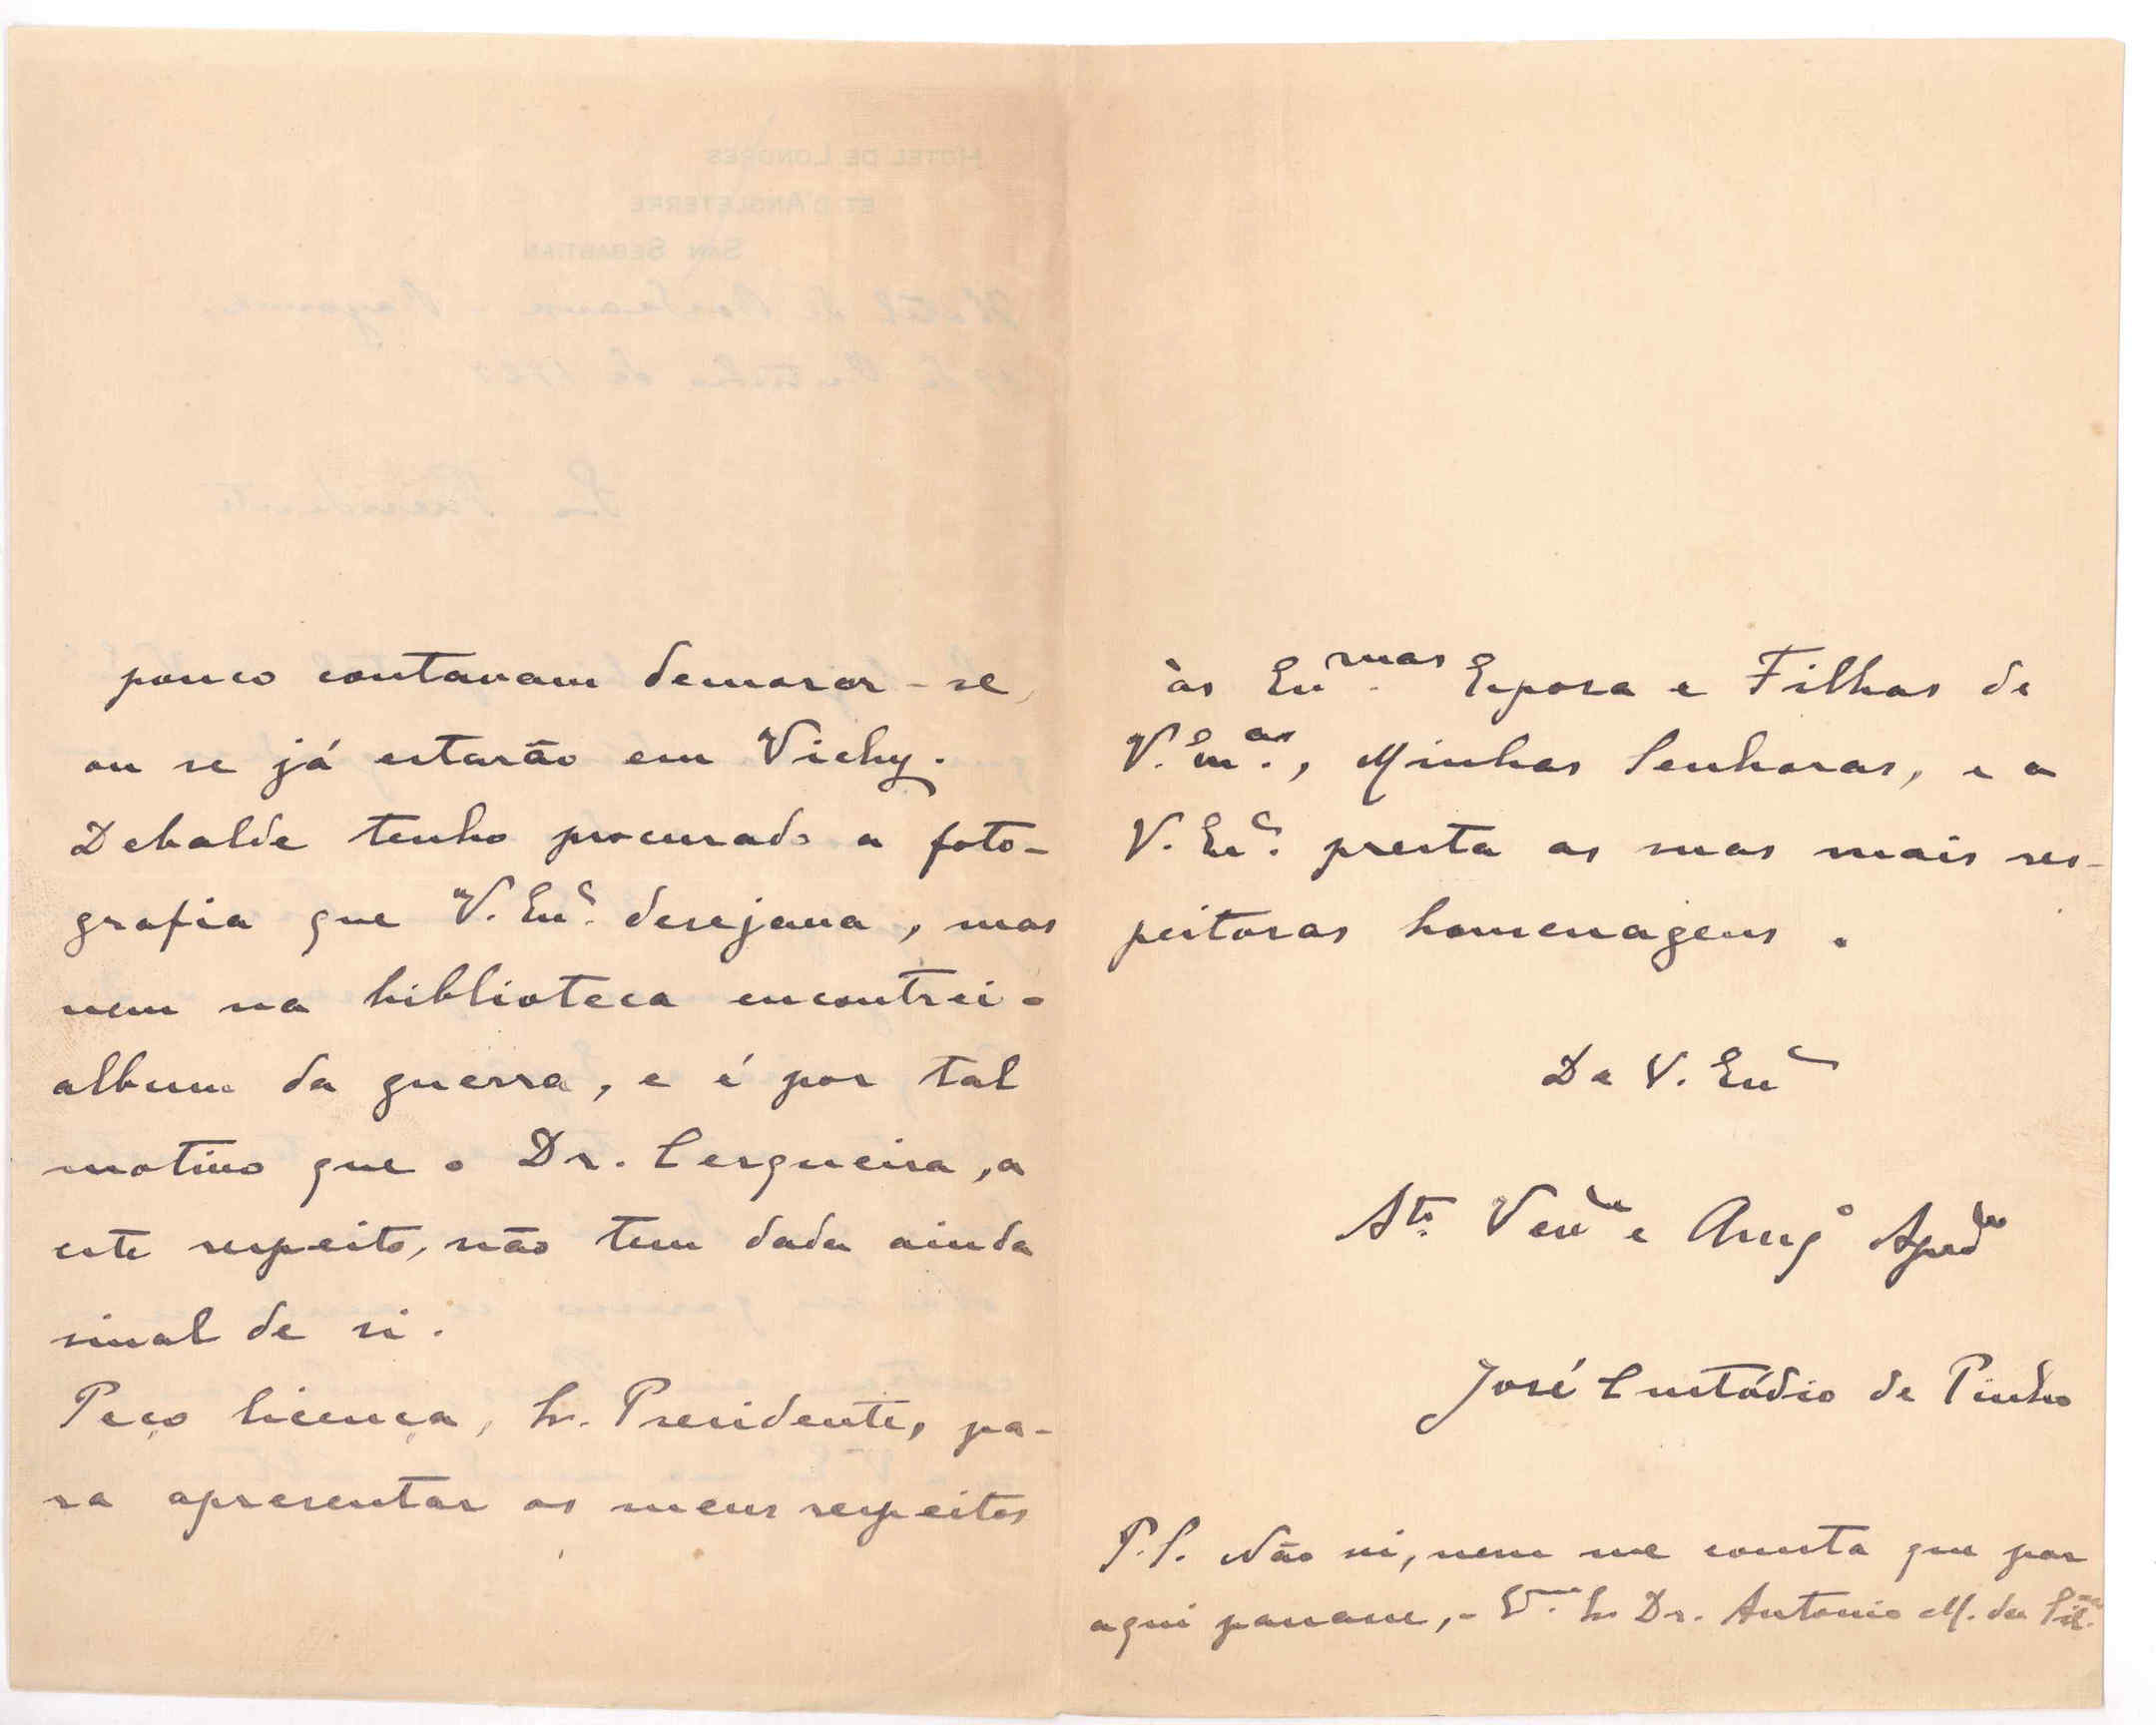 pouco contavam demorar-se,
ou se já estarão em Vichy.
Debalde tenho procurado a foto-
grafia que V. Exª. desejava, mas
nem na biblioteca encontrei o
album da guerra, e é por tal
motivo que o Dr. Cerqueira, a
este respeito, não tem dado ainda
sinal de si.
Peço licença, Sr. Presidente, pa-
ra apresentar os meus respeitos
às Ex.mas Esposa e Filhas de
V. Ex.as, Minhas Senhoras, e a
V. Exª. presta as suas mais res-
peitosas homenagens.
De V. Exª
Atº. Venor e Amgº
José Custódio de Pinho
P.S. Não vi, nem me consta que por
aqui passasse, o Dr. Antonio M. da
HOTEL DE LONDRES
ET D'ANGLETERRE
SAN SEBASTIAN
Sr. Presidente